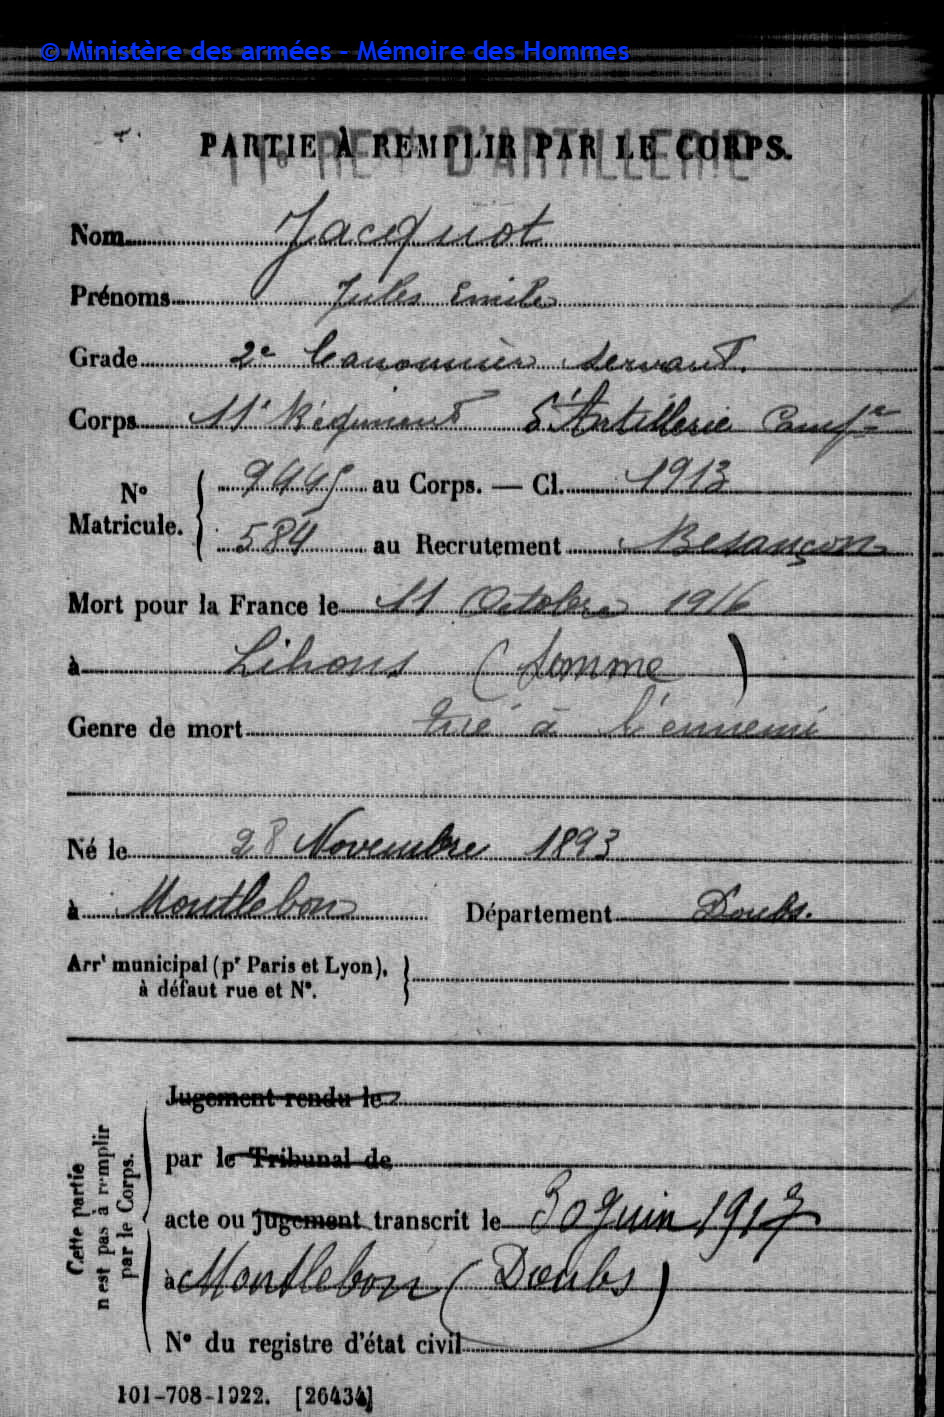 © Ministère des armées - Mémoire des Hommes
PARTIE À REMPLIR PAR LE CORPS.
11e REGt D'ARTILLERIE
Nom Jacquot
Prénoms Jules Emile
Grade 2e Canonnier servant.
Corps 11e Régiment d'Artillerie Campe
No Matricule. { 9445 au Corps. — Cl. 1913
584 au Recrutement Besançon
Mort pour la France le 11 Octobre 1916
à Lihons (Somme)
Genre de mort tué à l'ennemi
Né le 28 Novembre 1893
à Montlebon Département Doubs.
Arrt municipal (pr Paris et Lyon),
à défaut rue et No.
Cette partie
n'est pas à remplir
par le Corps.
Jugement rendu le
par le Tribunal de
acte ou jugement transcrit le 30 Juin 1917
à Montlebon (Doubs)
No du registre d'état civil
101-708-1922. [26434]